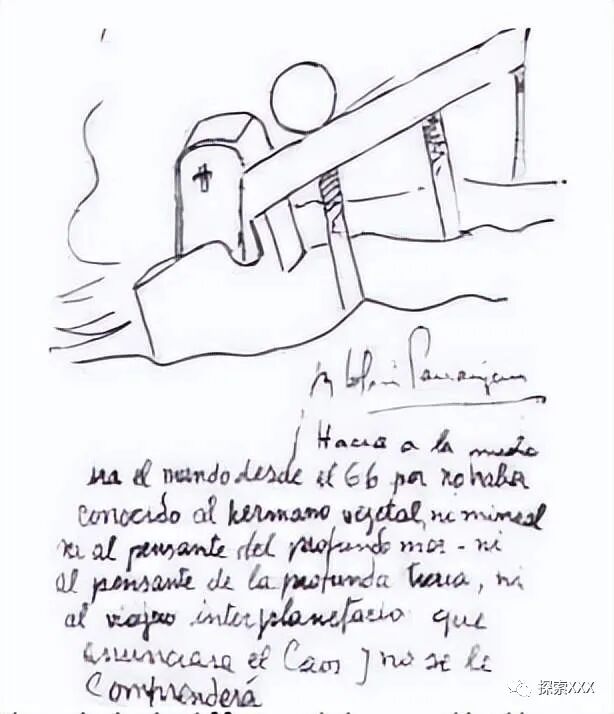 Hacia a la
el mundo desde el 66 por no haber
conocido al hermano vegetal, ni mineral
ni al pensante del profundo mar - ni
al pensante de la profunda tierra, ni
al viajero interplanetario que
anunciara el Caos y no se le
Comprenderá
探索XXX